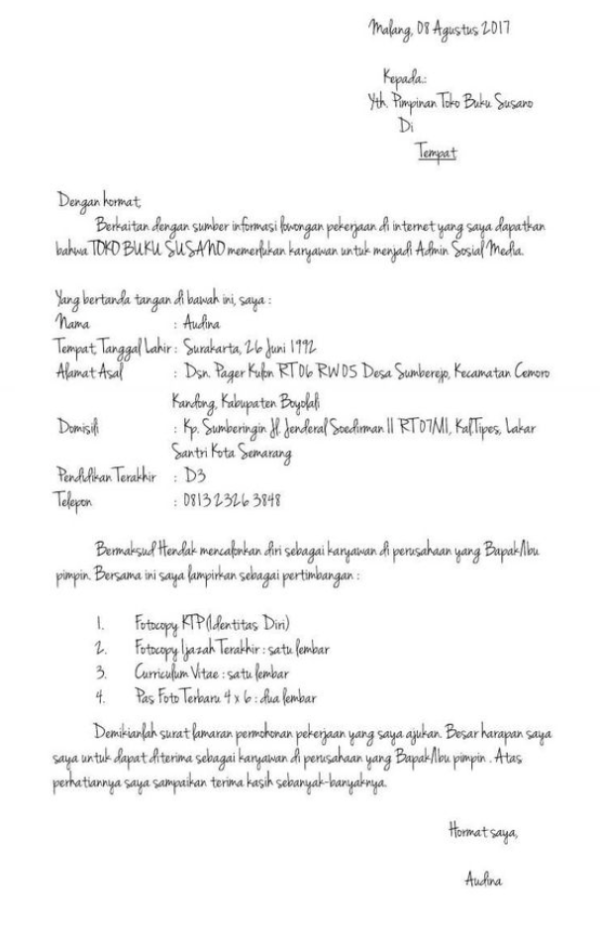 Malang, 08 Agustus 2017
Kepada.:
Yth. Pimpinan Toko Buku Susano
Di
Tempat
Dengan hormat,
Berkaitan dengan sumber informasi lowongan pekerjaan di internet yang saya dapatkan
bahwa TOKO BUKU SUSANO memerlukan karyawan untuk menjadi Admin Sosial Media.
Yang bertanda tangan di bawah ini, saya :
Nama : Audina
Tempat, Tanggal Lahir : Surakarta, 26 Juni 1992
Alamat Asal : Dsn. Pager Kulon RT 06 RW 05 Desa Sumberejo, Kecamatan Cemoro
Kandong, Kabupaten Boyolali
Domisili : Kp. Sumberingin Jl Jenderal Soedirman II RT 07/VI, Kal.Tipes, Lakar
Santri Kota Semarang
Pendidikan Terakhir : D3
Telepon : 0813 2326 3848
Bermaksud Hendak mencalonkan diri sebagai karyawan di perusahaan yang Bapak/Ibu
pimpin. Bersama ini saya lampirkan sebagai pertimbangan :
1. Fotocopy KTP (Identitas Diri)
2. Fotocopy Ijazah Terakhir : satu lembar
3. Curriculum Vitae : satu lembar
4. Pas Foto Terbaru 4 x 6 : dua lembar
Demikianlah surat lamaran permohonan pekerjaan yang saya ajukan. Besar harapan saya
saya untuk dapat diterima sebagai karyawan di perusahaan yang Bapak/Ibu pimpin . Atas
perhatiannya saya sampaikan terima kasih sebanyak-banyaknya.
Hormat saya,
Audina